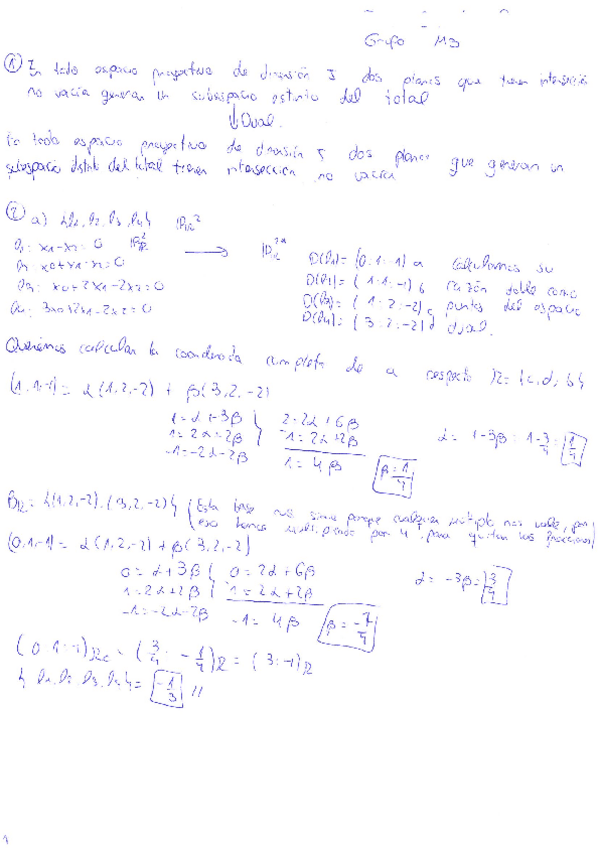 Grupo M3
① En todo espacio proyectivo de dimensión 5 dos planos que tienen intersección
no vacía generan un subespacio distinto del total
⇓ Dual.
En todo espacio proyectivo de dimensión 5 dos planos que generan un
subespacio distinto del total tienen intersección no vacía
② a) {l1, l2, l3, l4}
l1: x1-x2=0
l2: x0+x1-x2=0
l3: x0+2x1-2x2=0
l4: 3x0+2x1-2x2=0
D(l1)=(0:1:-1) a
D(l2)=(1:1:-1) b
D(l3)=(1:2:-2) c
D(l4)=(3:2:-2) d
Calculamos su
razón doble como
puntos del espacio
dual.
Queremos calcular la coordenada completa de a respecto R={c,d;b}
(1,1,-1) = α(1,2,-2) + β(3,2,-2)
1=α+3β 2=2α+6β
1=2α+2β -1=2α+2β α=1-3β=1-3/4=1/4
-1=-2α-2β 1=4β β=1/4
BR={(1,2,-2),(3,2,-2)} (Esta base nos sirve porque cualquier múltiplo nos vale, por
eso hemos multiplicado por 4, para quitar las fracciones)
(0,1,-1) = α(1,2,-2) + β(3,2,-2)
0=α+3β 0=2α+6β α=-3β=3/4
1=2α+2β 1=2α+2β
-1=-2α-2β -1=4β β=-1/4
(0:1:-1) = (3/4:-1/4)R = (3:-1)R
{l1,l2,l3,l4}=-1/3 //
1